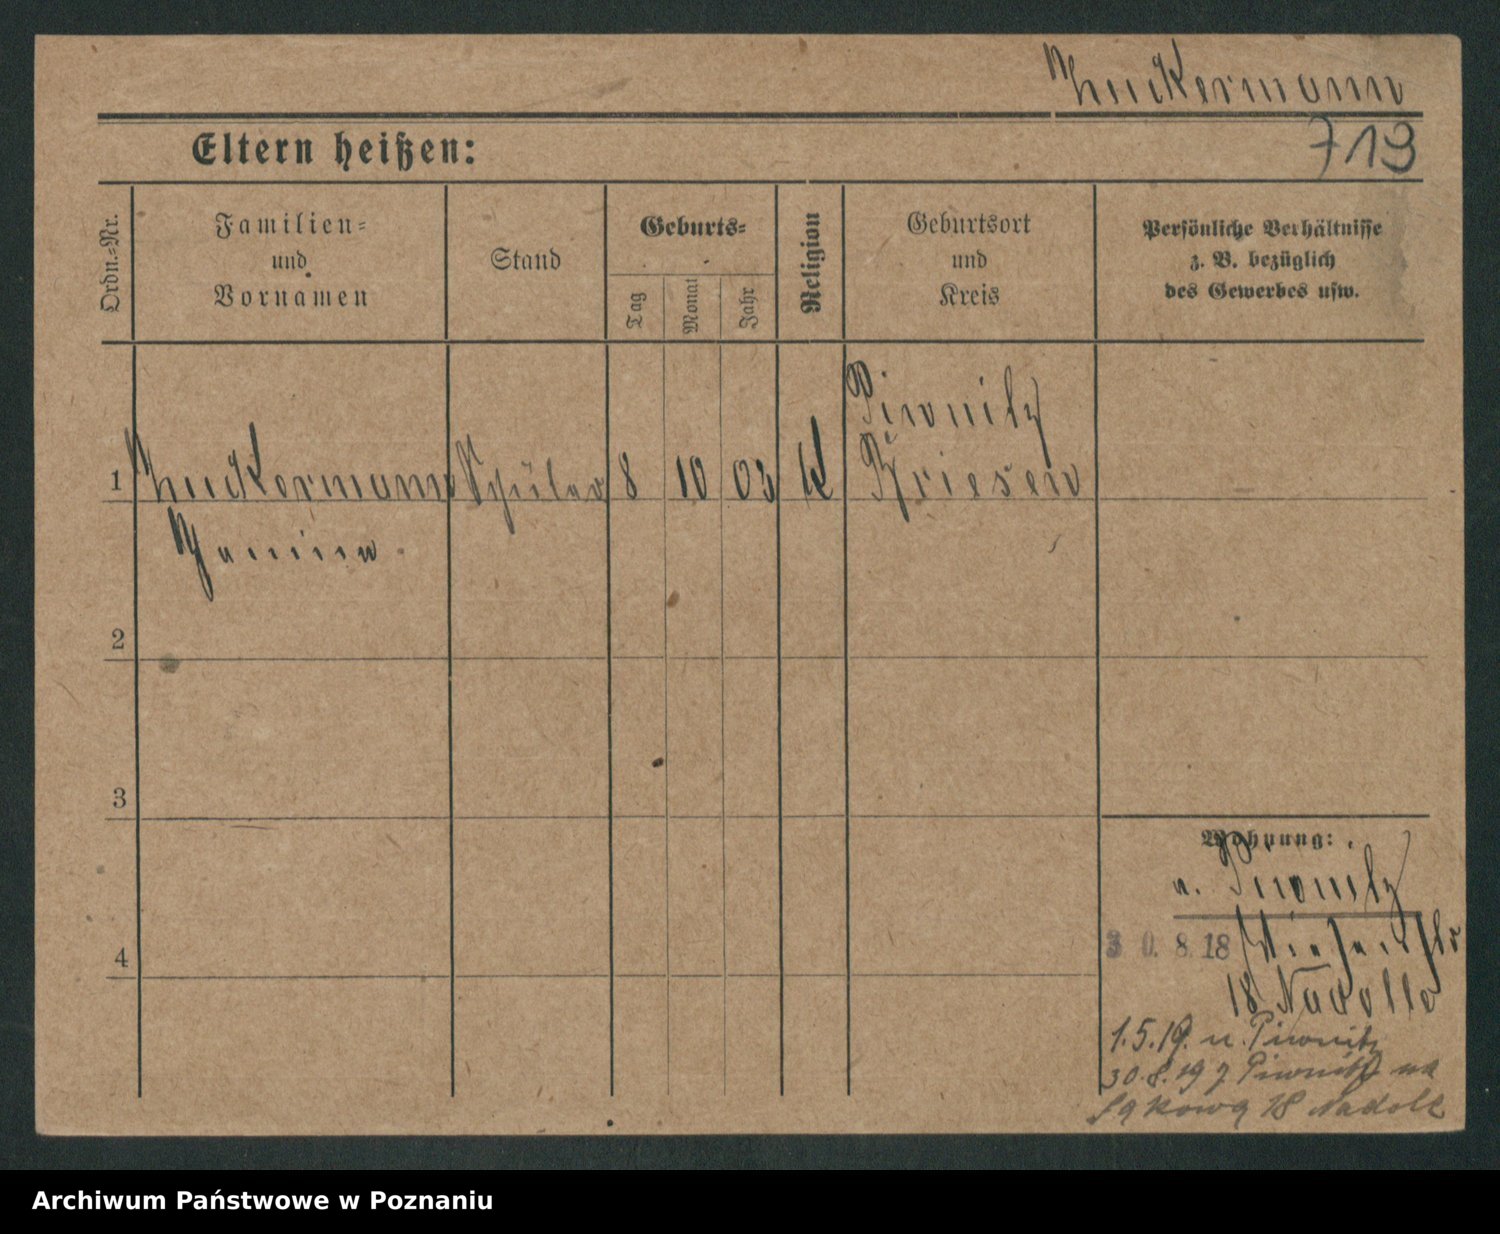 Zuckermann
719
Eltern heißen:
Ordn.-Nr.
Familien-
und
Vornamen
Stand
Geburts-
Tag
Monat
Jahr
Religion
Geburtsort
und
Kreis
Persönliche Verhältnisse
z. B. bezüglich
des Gewerbes usw.
1 Zuckermann Schüler 8 10 03 k Piwnitz
Briesen
Janina
2
3
4
Wohnung:
n. Piwnitz
30.8.18
18 Nadolle
1.5.19. n. Piwnitz
30.8.19 z Piwnitz na
Łąkową 18 Nadole
Archiwum Państwowe w Poznaniu